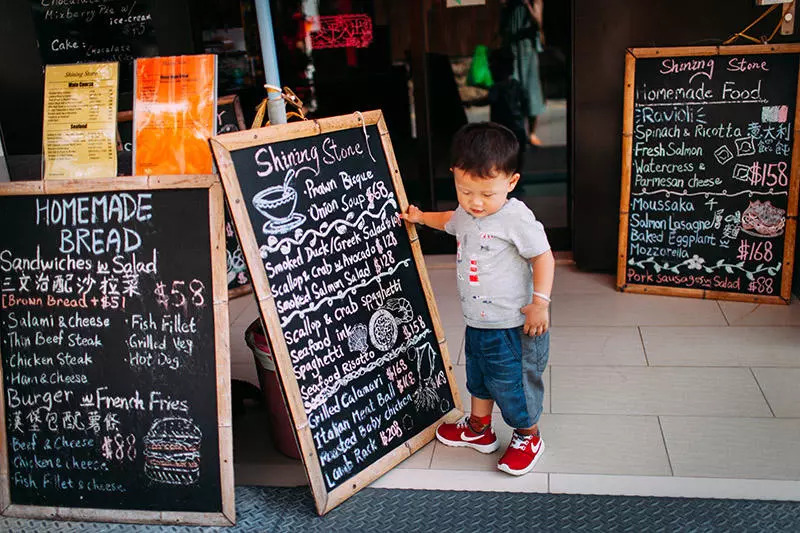 Mixberry
ice-cream
$15
Cake:
Chocolate
Main Course
Seafood
$158
HOMEMADE
BREAD
Sandwiches w Salad
三文治配沙拉菜
$58
[Brown Bread +$5]
· Salami & cheese
· Fish Fillet
· Thin Beef Steak
· Grilled Veg
· Chicken Steak
· Hot Dog
· Ham & cheese
Burger w French Fries
漢堡包配薯條
· Beef & Cheese
· Chicken & cheese
$88
· Fish Fillet & cheese
Shining Stone
· Prawn Bisque
· Onion Soup $68
Smoked Duck/Greek Salad
Scallop & Crab w Avocado
Smoked Salmon Salad $128
Scallop & crab Spaghetti
Seafood ink
Spaghetti
$158
Seafood Risotto
Grilled Calamari
Italian Meat Ball
Roasted Baby chicken
Lamb Rack $208
Shining Stone
Homemade Food
Ravioli
Spinach & Ricotta
意大利
Fresh Salmon
雲吞
Watercress &
Parmesan cheese
$158
Moussaka
Salmon Lasagne
Baked Eggplant
Mozzorella
$168
Pork sausages/Salad $88